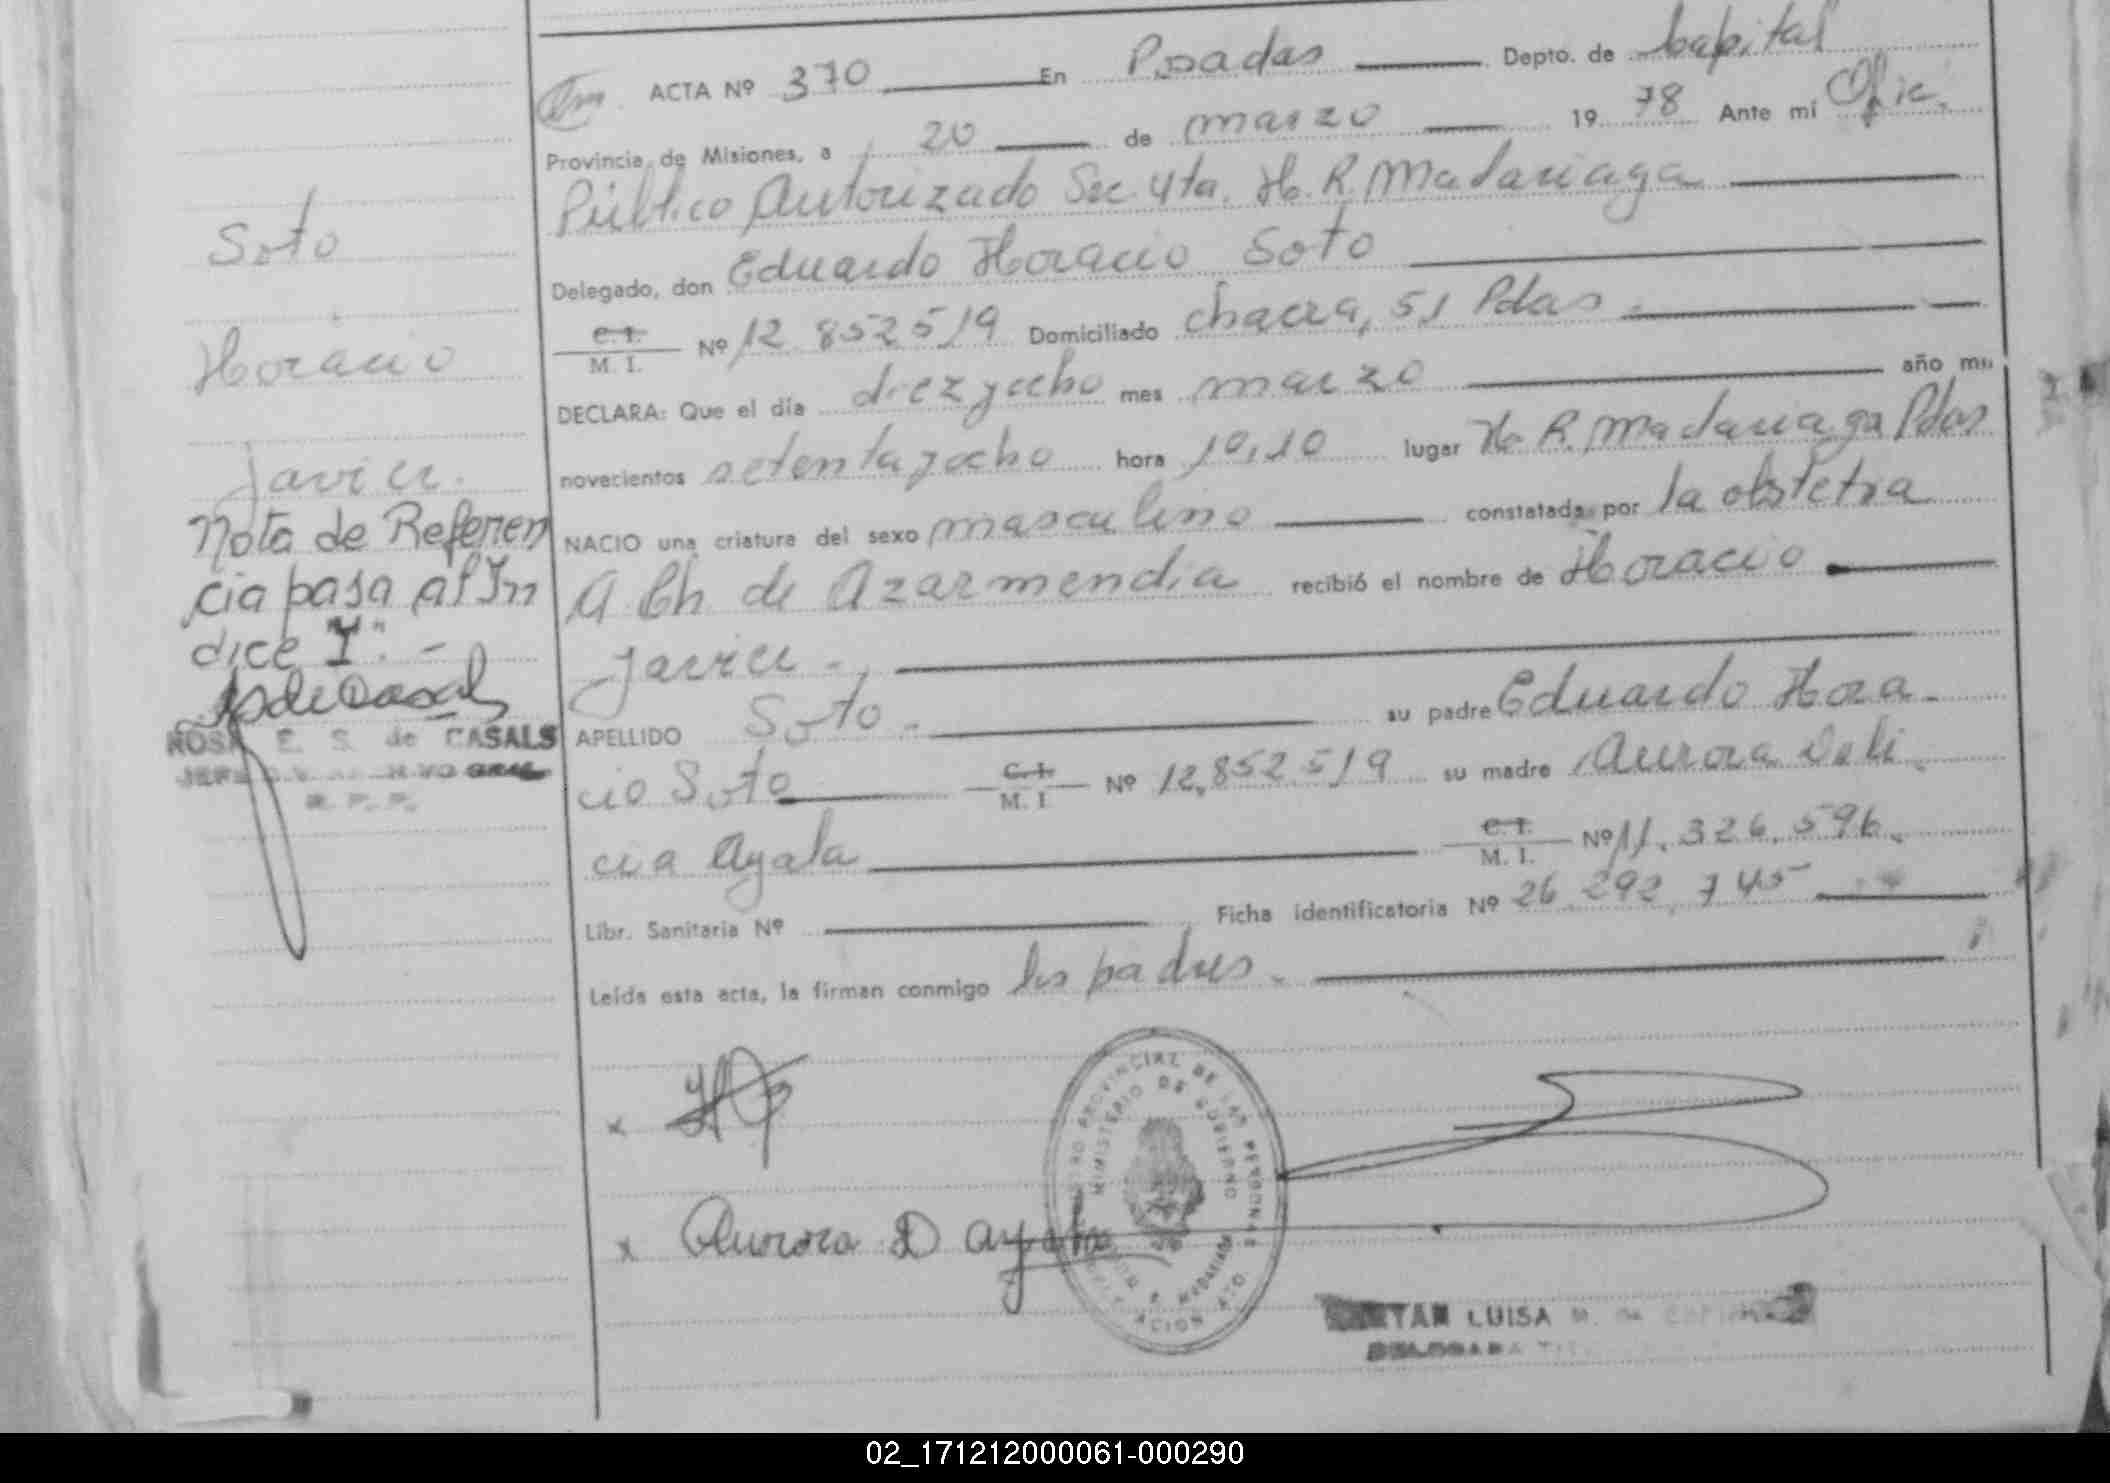 ACTA Nº 370 En Posadas Depto. de Capital
Provincia de Misiones, a 20 de marzo 19 78 Ante mí Ofic.
Público Autorizado Sec. 4ta. H. R. Madariaga
Delegado, don Eduardo Horacio Soto
C. I. M. I. Nº 12.852519 Domiciliado chacra, 51 Pdas.
DECLARA: Que el día diezyocho mes marzo año mil
novecientos setentayocho hora 10,10 lugar H. R. Madariaga Pdas
NACIO una criatura del sexo masculino constatada por la obstetra
A Ch. de Azarmendia recibió el nombre de Horacio
Javier.
APELLIDO Soto. su padre Eduardo Hora
cio Soto C. I. M. I Nº 12,852519 su madre Aurora Deli
cia Ayala C. I. M. I. Nº 11.326.596.
Libr. Sanitaria Nº Ficha identificatoria Nº 26.292.745
Leída esta acta, la firman conmigo los padres.
Soto
Horacio
Javier.
Nota de Referen
cia pasa al In
dice "I".-
ROSA E. S. de CASALS
R. P. P.
x
x Aurora D Ayala
PROVINCIAL DE LAS PERSONAS
MINISTERIO DE GOBIERNO
LUISA M. de
02_171212000061-000290